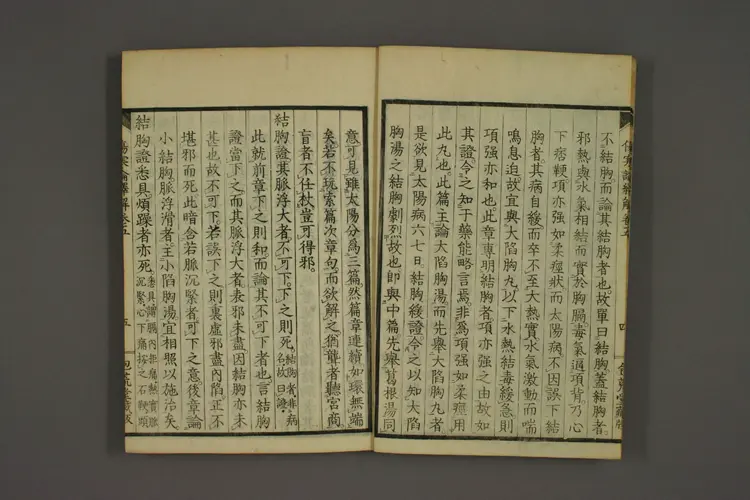 不結胸而論其結胸者也。故單曰結胸。蓋結胸者。
邪熱與水氣相結而實於胸膈。毒氣逼項背。乃心
下痞鞕。項亦强。如柔痓狀。而太陽病。不因誤下結
胸者。其病自緩。而卒不至大熱實。水氣激動。而喘
鳴息迫。故宜與大陷胸丸。以下水熱結毒。緩急則
項强亦和也。此章專明結胸者項亦强之由。故如
其證。令之知于藥能。略言焉。非爲項强如柔痓用
此丸也。此篇主論大陷胸湯。而先擧大陷胸丸者。
是欲見太陽病六七日。結胸緩證。令之以知大陷
胸湯之結胸劇烈故也。即與中篇先擧葛根湯同
意可見。雖太陽分爲三篇。然篇章連續。如環無端
矣。若不玩索篇次章句。而欲解之。猶聾者聽宮商。
盲者不任杖。豈可得邪。
結胸證。其脈浮大者。不可下。下之則死。結胸者非病名。故曰證。
此就前章下之則和。而論其不可下者也。言結胸
證當下之。而其脈浮大者。表邪未盡。因結胸亦未
甚也。故不可下。若誤下之。則裏虛邪盡内陷。正不
堪邪而死。此暗含若脈沉緊者可下之意。後章論
小結胸脈浮滑者。主小陷胸湯。宜相照以施治矣。
結胸證悉具。煩躁者亦死。
傷寒論繹解卷五
五
四